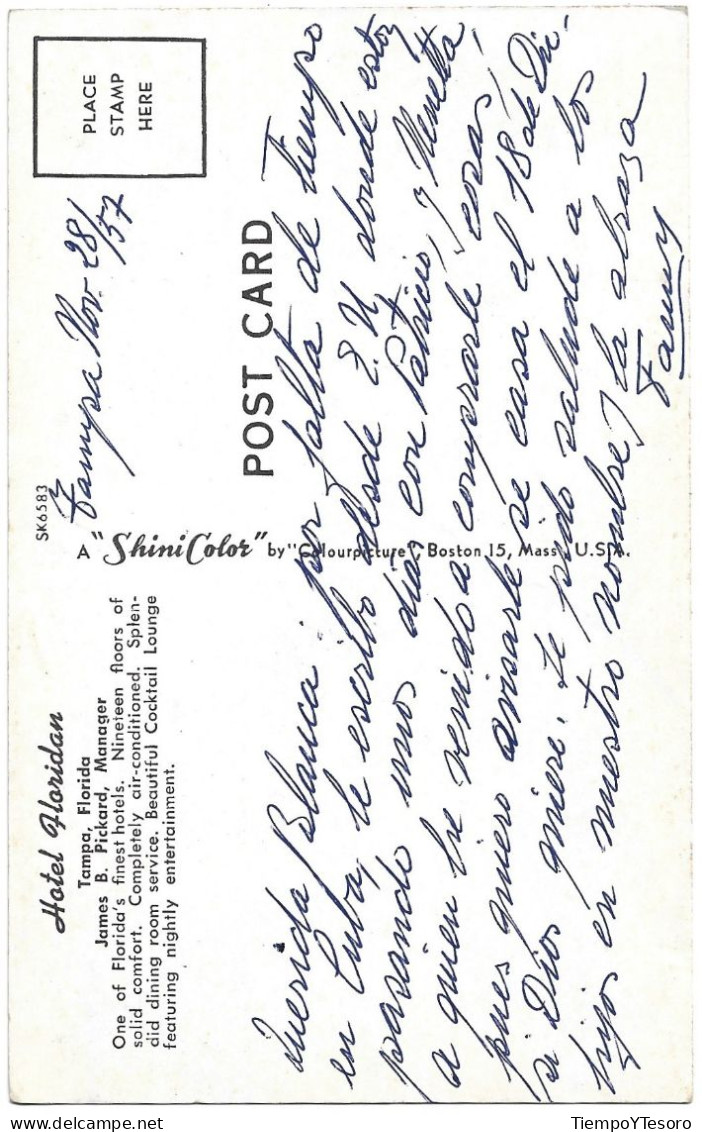 Hotel Floridan
Tampa, Florida
James B. Pickard, Manager
One of Florida's finest hotels. Nineteen floors of
solid comfort. Completely air-conditioned. Splen-
did dining room service. Beautiful Cocktail Lounge
featuring nightly entertainment.
SK6583
PLACE
STAMP
HERE
Tampa Nov. 28/57
A "ShiniColor" by "Colourpicture", Boston 15, Mass., U.S.A.
POST CARD
Querida Blanca: por falta de tiempo
en Cuba, le escribo desde E.U donde estoy
pasando unos dias con Patricio, y
a quien he venido a comprarle cosas,
pues quiero avisarle se casa el 18 de Di-
si Dios quiere. Le pido salude a los
hijos en nuestro nombre y la abraza
Fanny
TiempoYTesoro